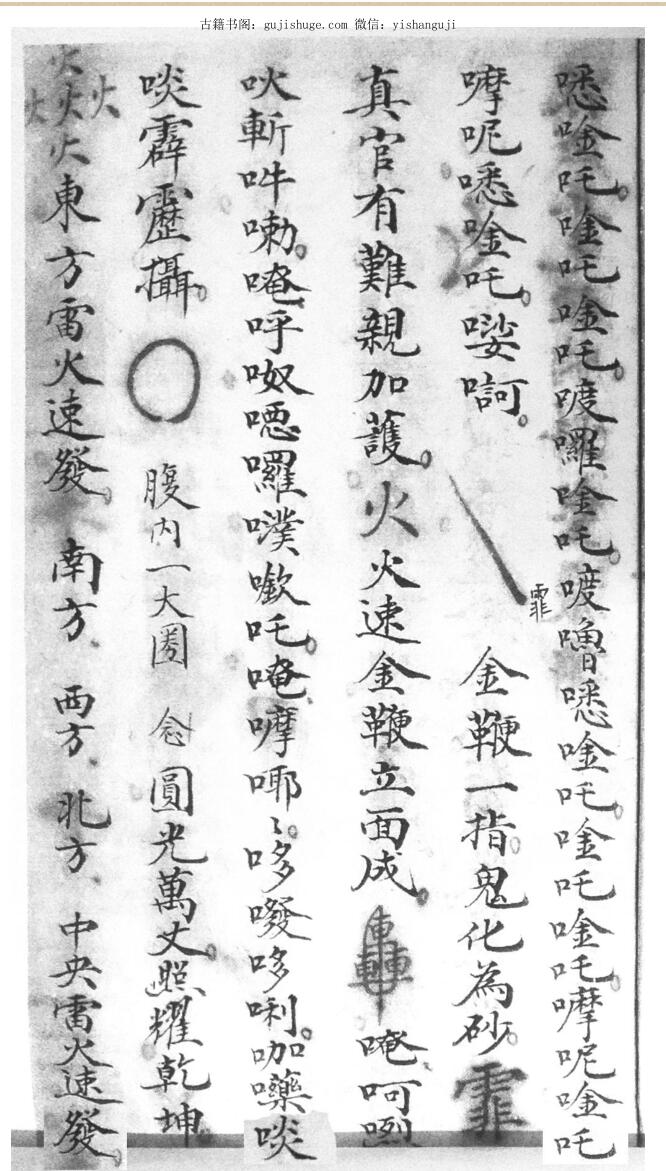 古籍书阁：gujishuge.com 微信：yishanguji
㗭唫吒。唫吒。唫吒。喥囉唫吒。喥嚕㗭唫吒。唫吒唫吒。嚩呢唫吒
嚩呢㗭唫吒。訶。霏金鞭一指鬼化為砂。霏
真官有難親加護。火火速金鞭立面成。轟唵呵
吙斬吽嘞。唵呼呶嚈囉噗噷吒。唵嚩哪哪。哆哆唎。咖啖
啖霹靂攝。腹内一大圈念圓光萬丈。照耀乾坤。
火火火火火東方雷火速發。南方、西方、北方、中央雷火速發。